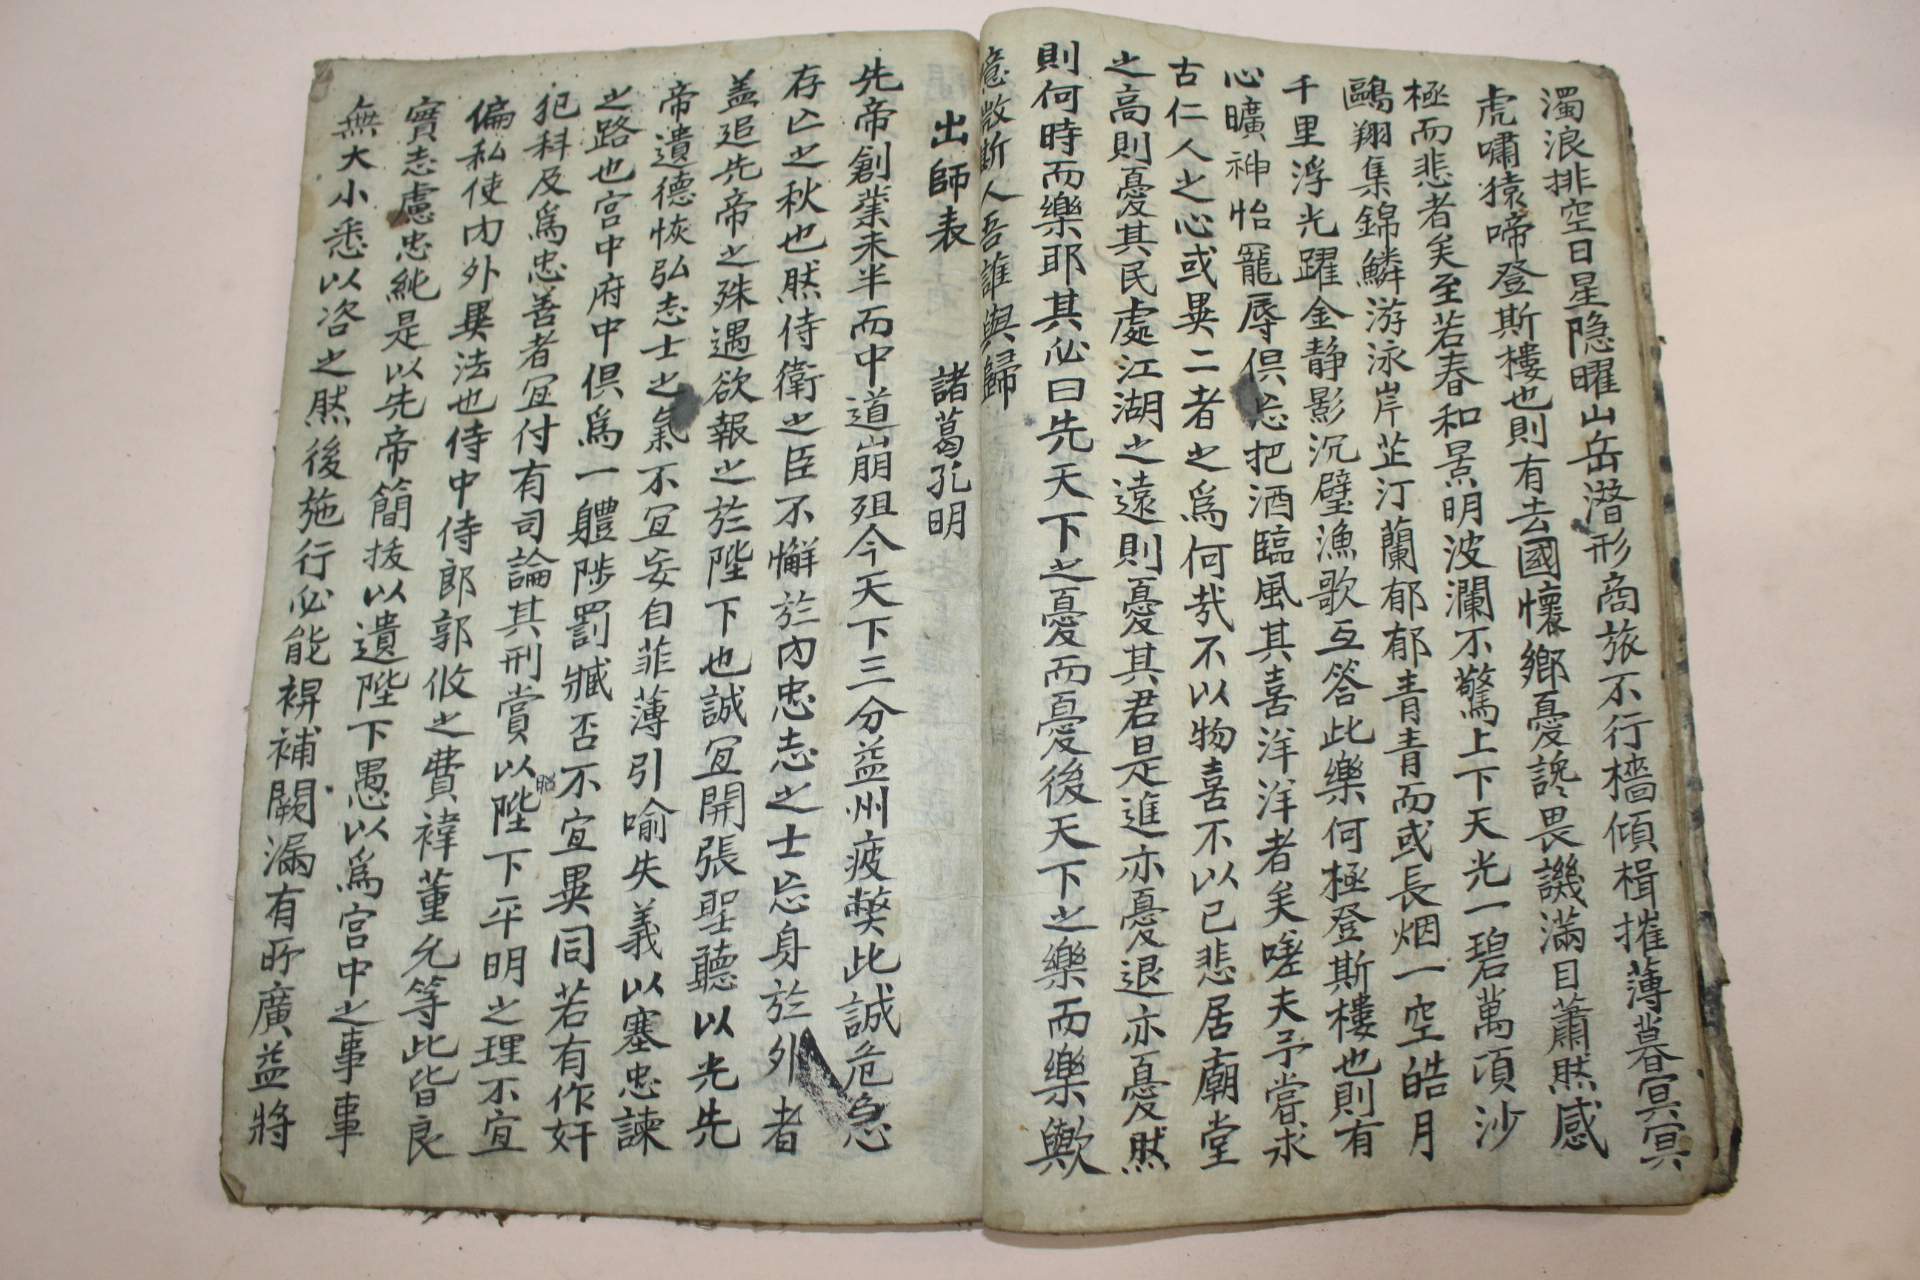 濁浪排空日星隱曜山岳潛形商旅不行檣傾楫摧薄暮冥冥
虎嘯猿啼登斯樓也則有去國懷鄉憂讒畏譏滿目蕭然感
極而悲者矣至若春和景明波瀾不驚上下天光一碧萬頃沙
鷗翔集錦鱗游泳岸芷汀蘭郁郁青青而或長烟一空皓月
千里浮光躍金静影沉璧漁歌互答此樂何極登斯樓也則有
心曠神怡寵辱俱忘把酒臨風其喜洋洋者矣嗟夫予嘗求
古仁人之心或異二者之爲何哉不以物喜不以己悲居廟堂
之高則憂其民處江湖之遠則憂其君是進亦憂退亦憂然
則何時而樂耶其必曰先天下之憂而憂後天下之樂而樂歟
噫微斯人吾誰與歸
出師表 諸葛孔明
先帝創業未半而中道崩殂今天下三分益州疲弊此誠危急
存亡之秋也然侍衛之臣不懈於內忠志之士忘身於外者
盖追先帝之殊遇欲報之於陛下也誠宜開張聖聽以光先
帝遺德恢弘志士之氣不宜妄自菲薄引喻失義以塞忠諫
之路也宮中府中俱爲一體陟罰臧否不宜異同若有作奸
犯科及爲忠善者宜付有司論其刑賞以昭陛下平明之理不宜
偏私使内外異法也侍中侍郎郭攸之費褘董允等此皆良
實志慮忠純是以先帝簡拔以遺陛下愚以爲宮中之事事
無大小悉以咨之然後施行必能裨補闕漏有所廣益將